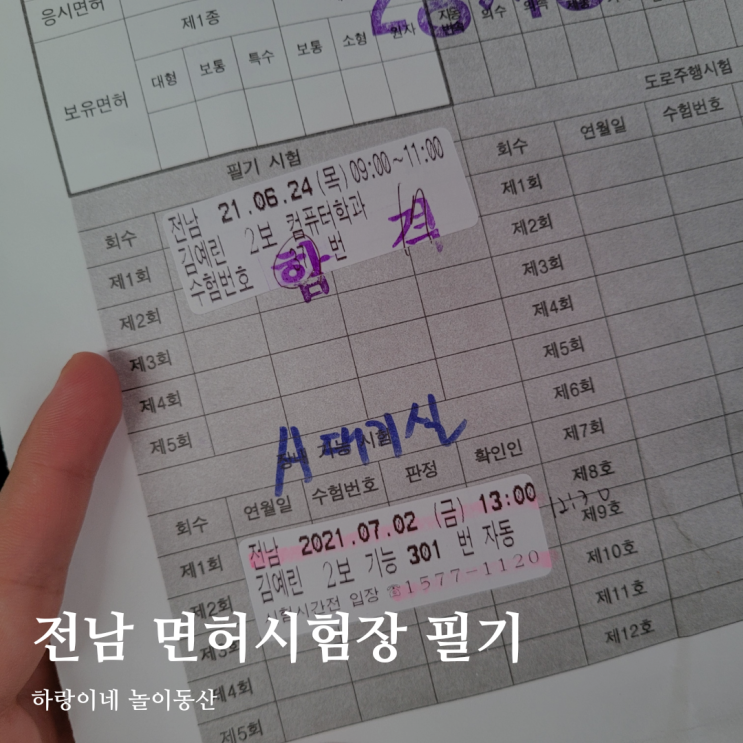 응시면허
제1종
보유면허
대형 보통 특수 보통 소형
의수
도로주행시험
필기 시험
회수 연월일 수험번호
전남 21.06.24(목)09:00~11:00
김예린 2보 컴퓨터학과
수험번호 번
합 격
회수
제1회
제2회
제3회
제4회
제5회
제1회
제2회
제3회
제4회
제5회
제6회
제7회
제8회
제9호
제10호
제11호
제12호
A 대기실
회수 연월일 수험번호 판정 확인인
전남 2021.07.02 (금) 13:00
김예린 2보 기능 301 번 자동
시험시간전 입장 ☎1577-1120
12:30
제1회
제2회
제3회
제4회
제5회
전남 면허시험장 필기
하랑이네 놀이동산